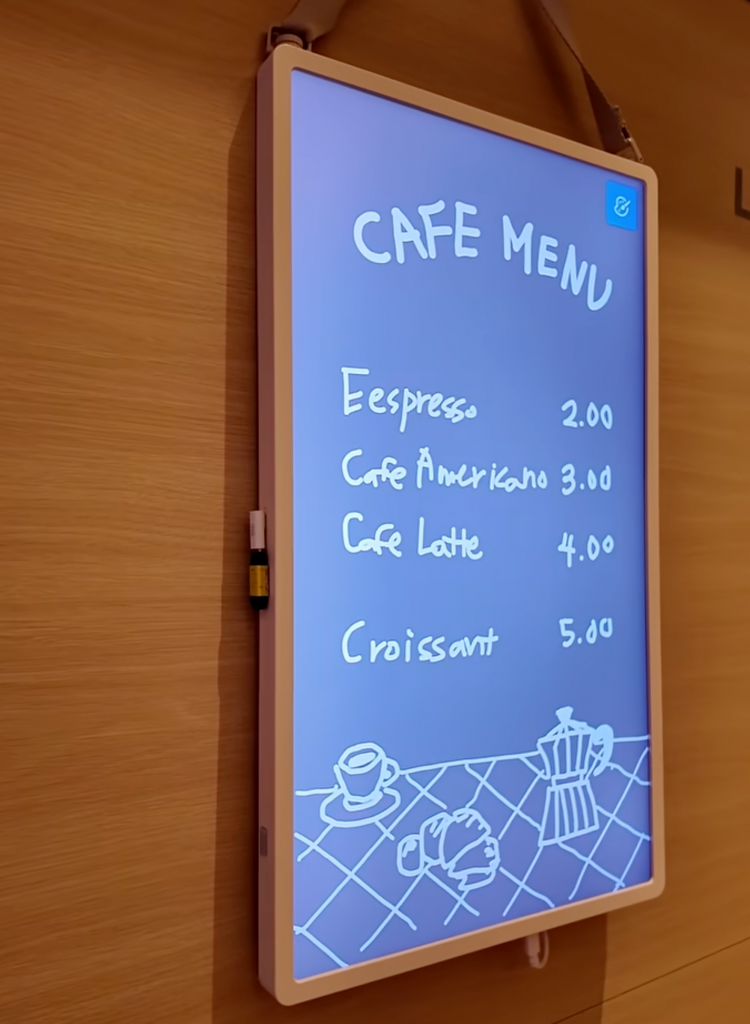 CAFE MENU
Eespresso 2.00
Cafe Americano 3.00
Cafe Latte 4.00
Croissant 5.00